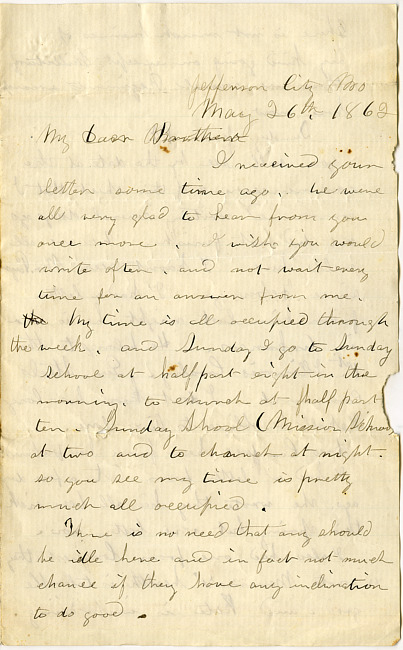 Jefferson City Mo
May 26th 1862
My Dear Brother
I received your
letter some time ago. we were
all very glad to hear from you
once more. I wish you would
write often. and not wait every
time for an answer from me.
My time is all occupied through
the week. and Sunday I go to Sunday
School at half part eight in the
morning. to church at half part
ten. Sunday Shool (Mission School
at two and to church at night.
so you see my time is pretty
much all occupied.
There is no need that any should
be idle here and in fact not much
chance if they have any inclination
to do good.